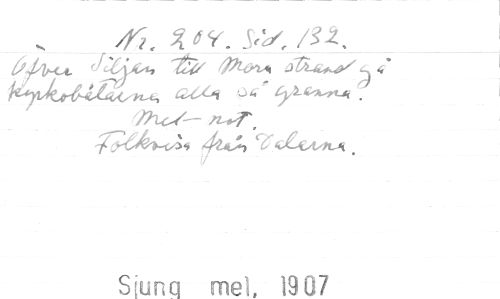 Nr. 204. Sid. 132.
Öfver Siljan till Mora strand gå
kyrkobåtarna alla så granna.
Met not.
Folkvisa från Dalarna.
Sjung mel, 1907